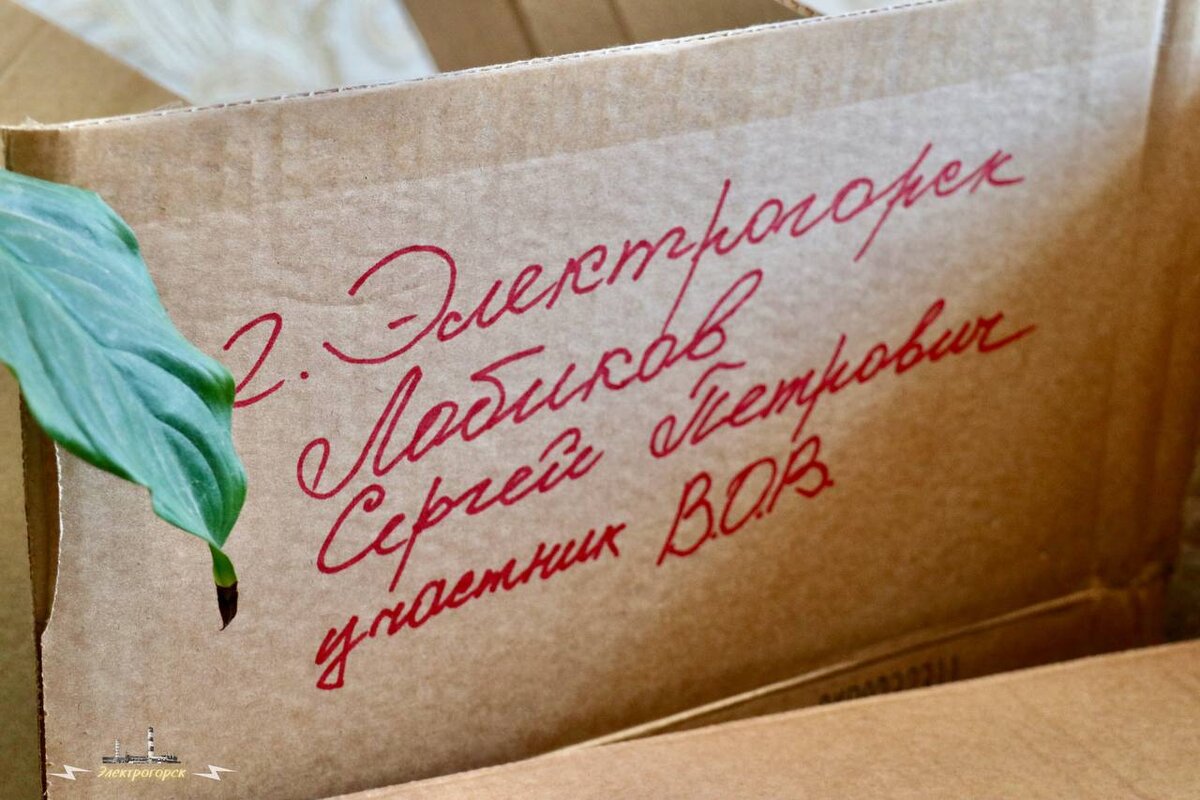 г. Электрогорск
Лобиков
Сергей Петрович
участник В.О.В.
Электрогорск